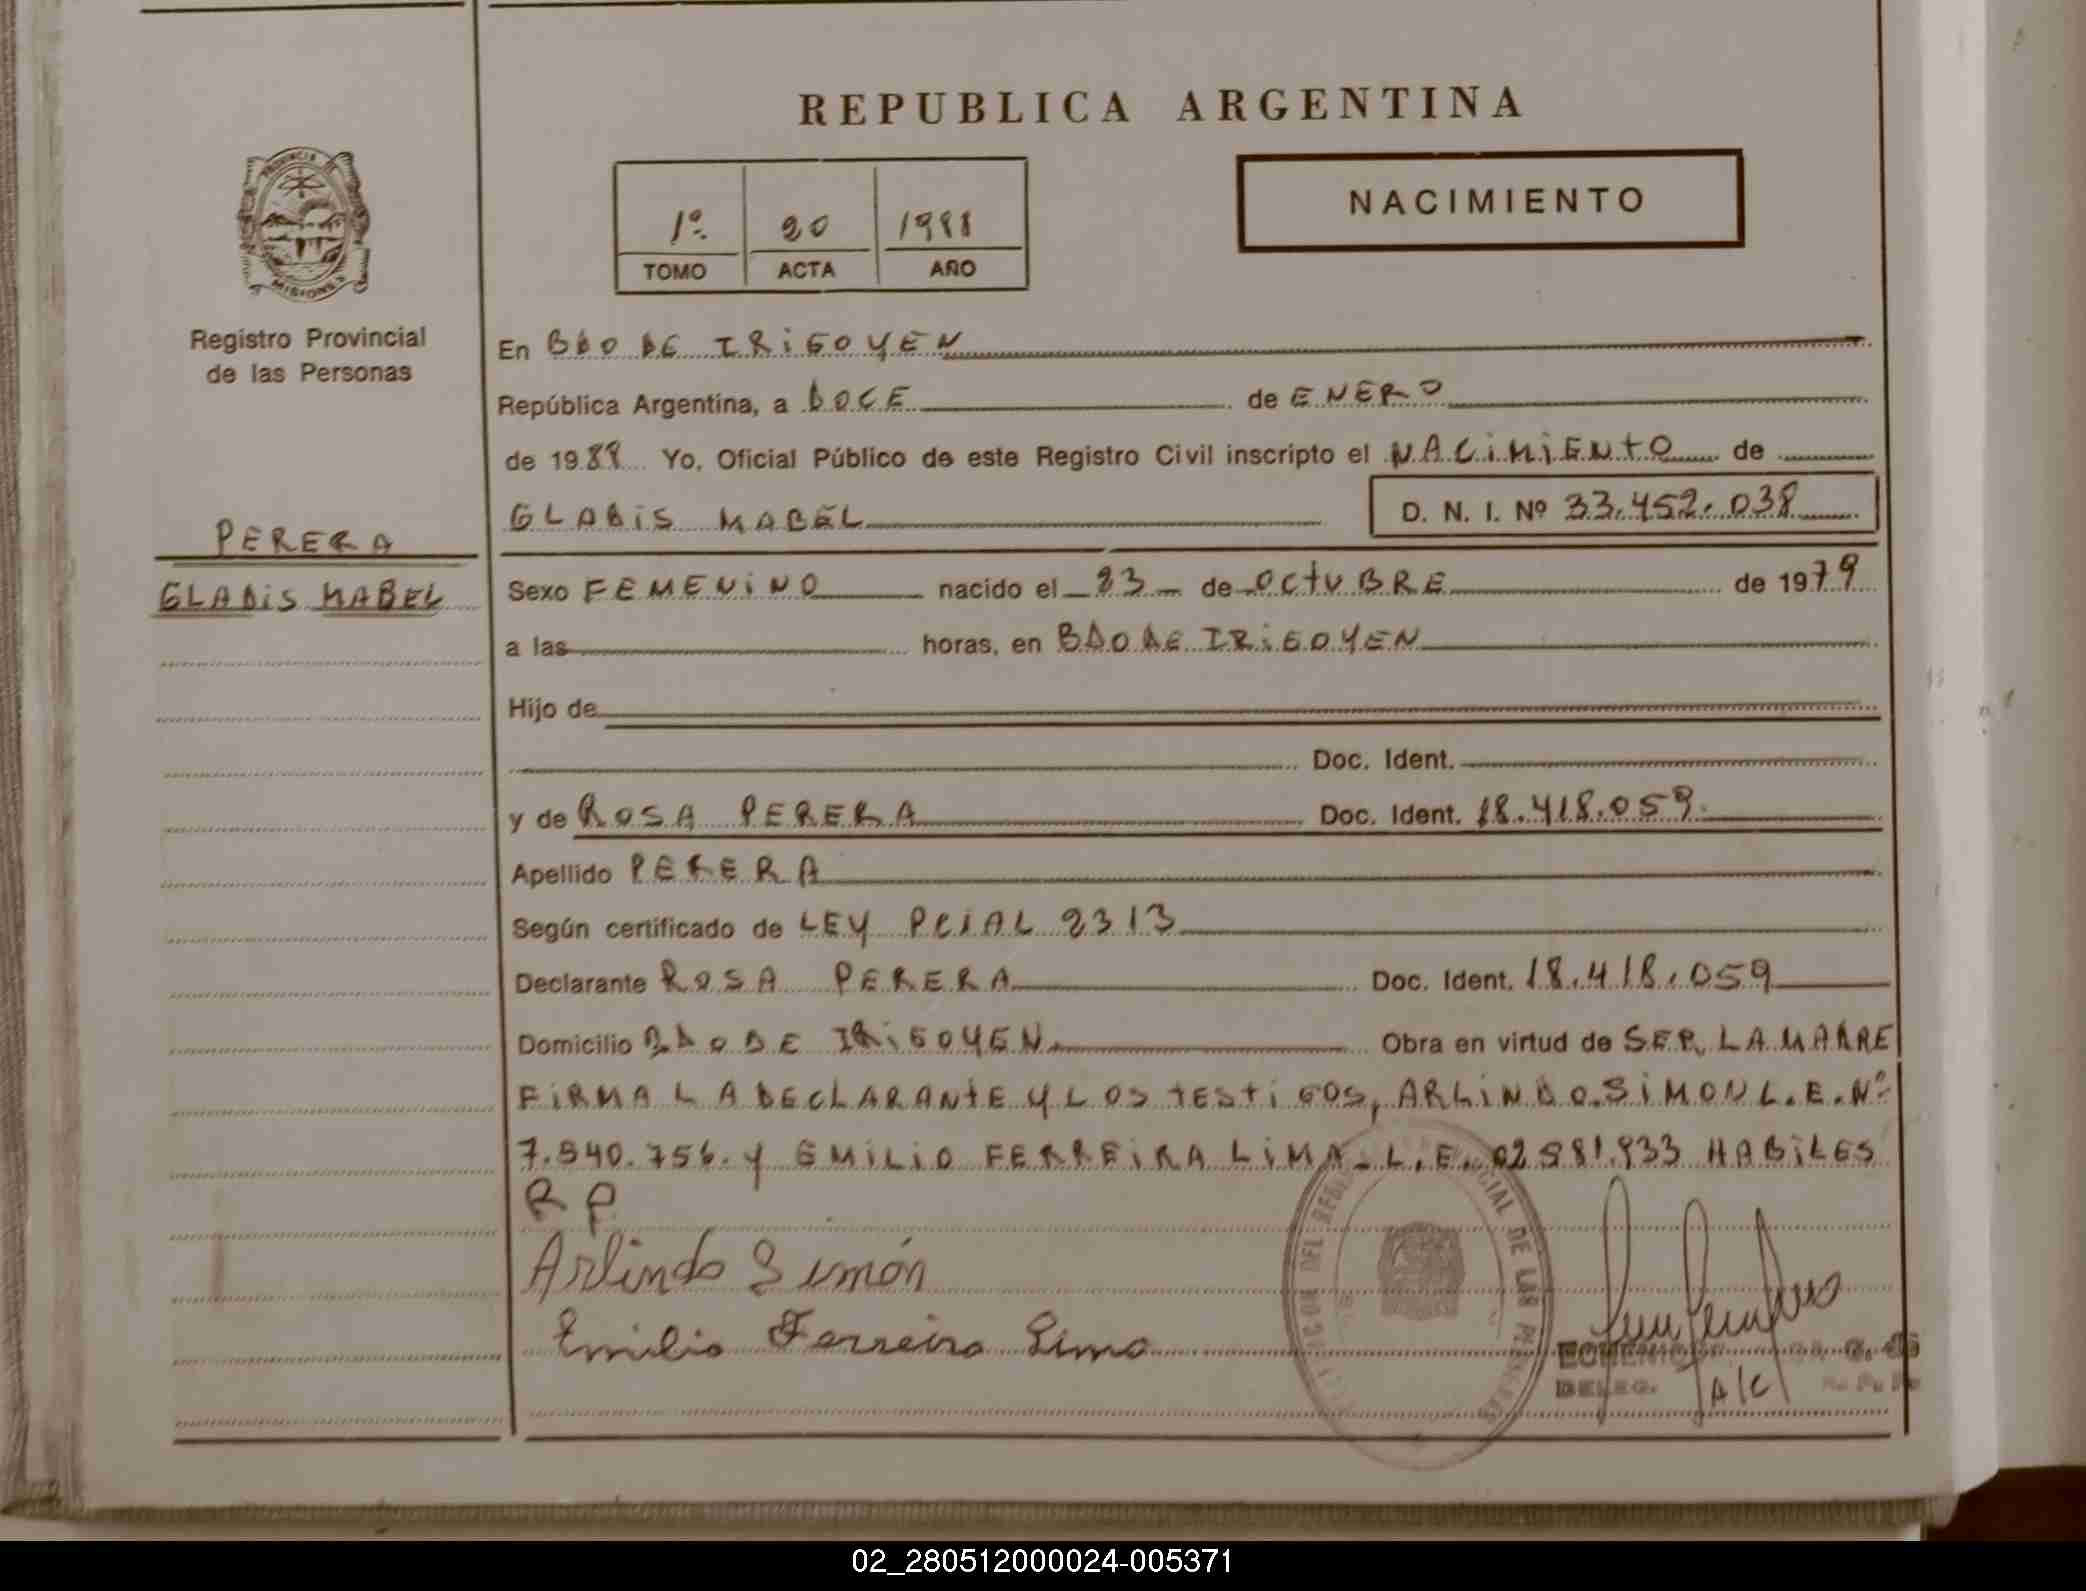 REPUBLICA ARGENTINA
PROVINCIA
MISIONES
1º 20 1988
TOMO ACTA AÑO
NACIMIENTO
Registro Provincial
de las Personas
PERERA
GLADIS MABEL
En BDO DE IRIGOYEN
República Argentina, a DOCE de ENERO
de 1988 Yo, Oficial Público de este Registro Civil inscripto el NACIMIENTO de
GLADIS MABEL D. N. I. Nº 33.452.038
Sexo FEMENINO nacido el 23 de OCTUBRE de 1979
a las horas, en BDO DE IRIGOYEN
Hijo de
Doc. Ident.
y de ROSA PERERA Doc. Ident. 18.418.059
Apellido PERERA
Según certificado de LEY PCIAL 2313
Declarante ROSA PERERA Doc. Ident. 18.418.059
Domicilio BDO DE IRIGOYEN Obra en virtud de SER LA MADRE
FIRMA LA DECLARANTE Y LOS TESTIGOS, ARLINDO SIMON L.E. Nº
7.540.756. Y EMILIO FERREIRA LIMA L.E. HABILES
R P
Arlindo Simón
Emilio Ferreira Lima
DE LAS
DELEG.
02_280512000024-005371